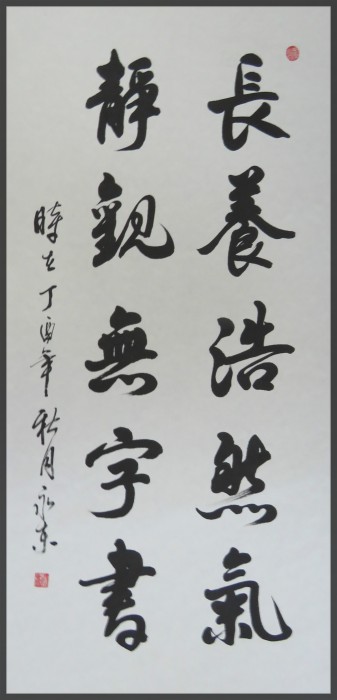 長養浩然氣
靜觀無字書
時在丁酉年秋月永東